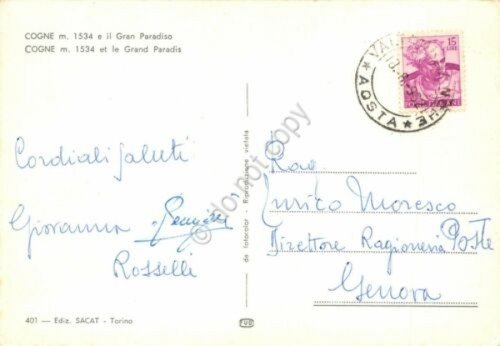 COGNE m. 1534 e il Gran Paradiso
COGNE m. 1534 et le Grand Paradis
15
LIRE
★ AOSTA ★
Cordiali Saluti
Giovanna
Rosselli
Rag.
Enrico Moresco
Direttore Ragioneria Poste
Genova
da fotocolor - Riproduzione vietata
do not copy
401 — Ediz. SACAT - Torino